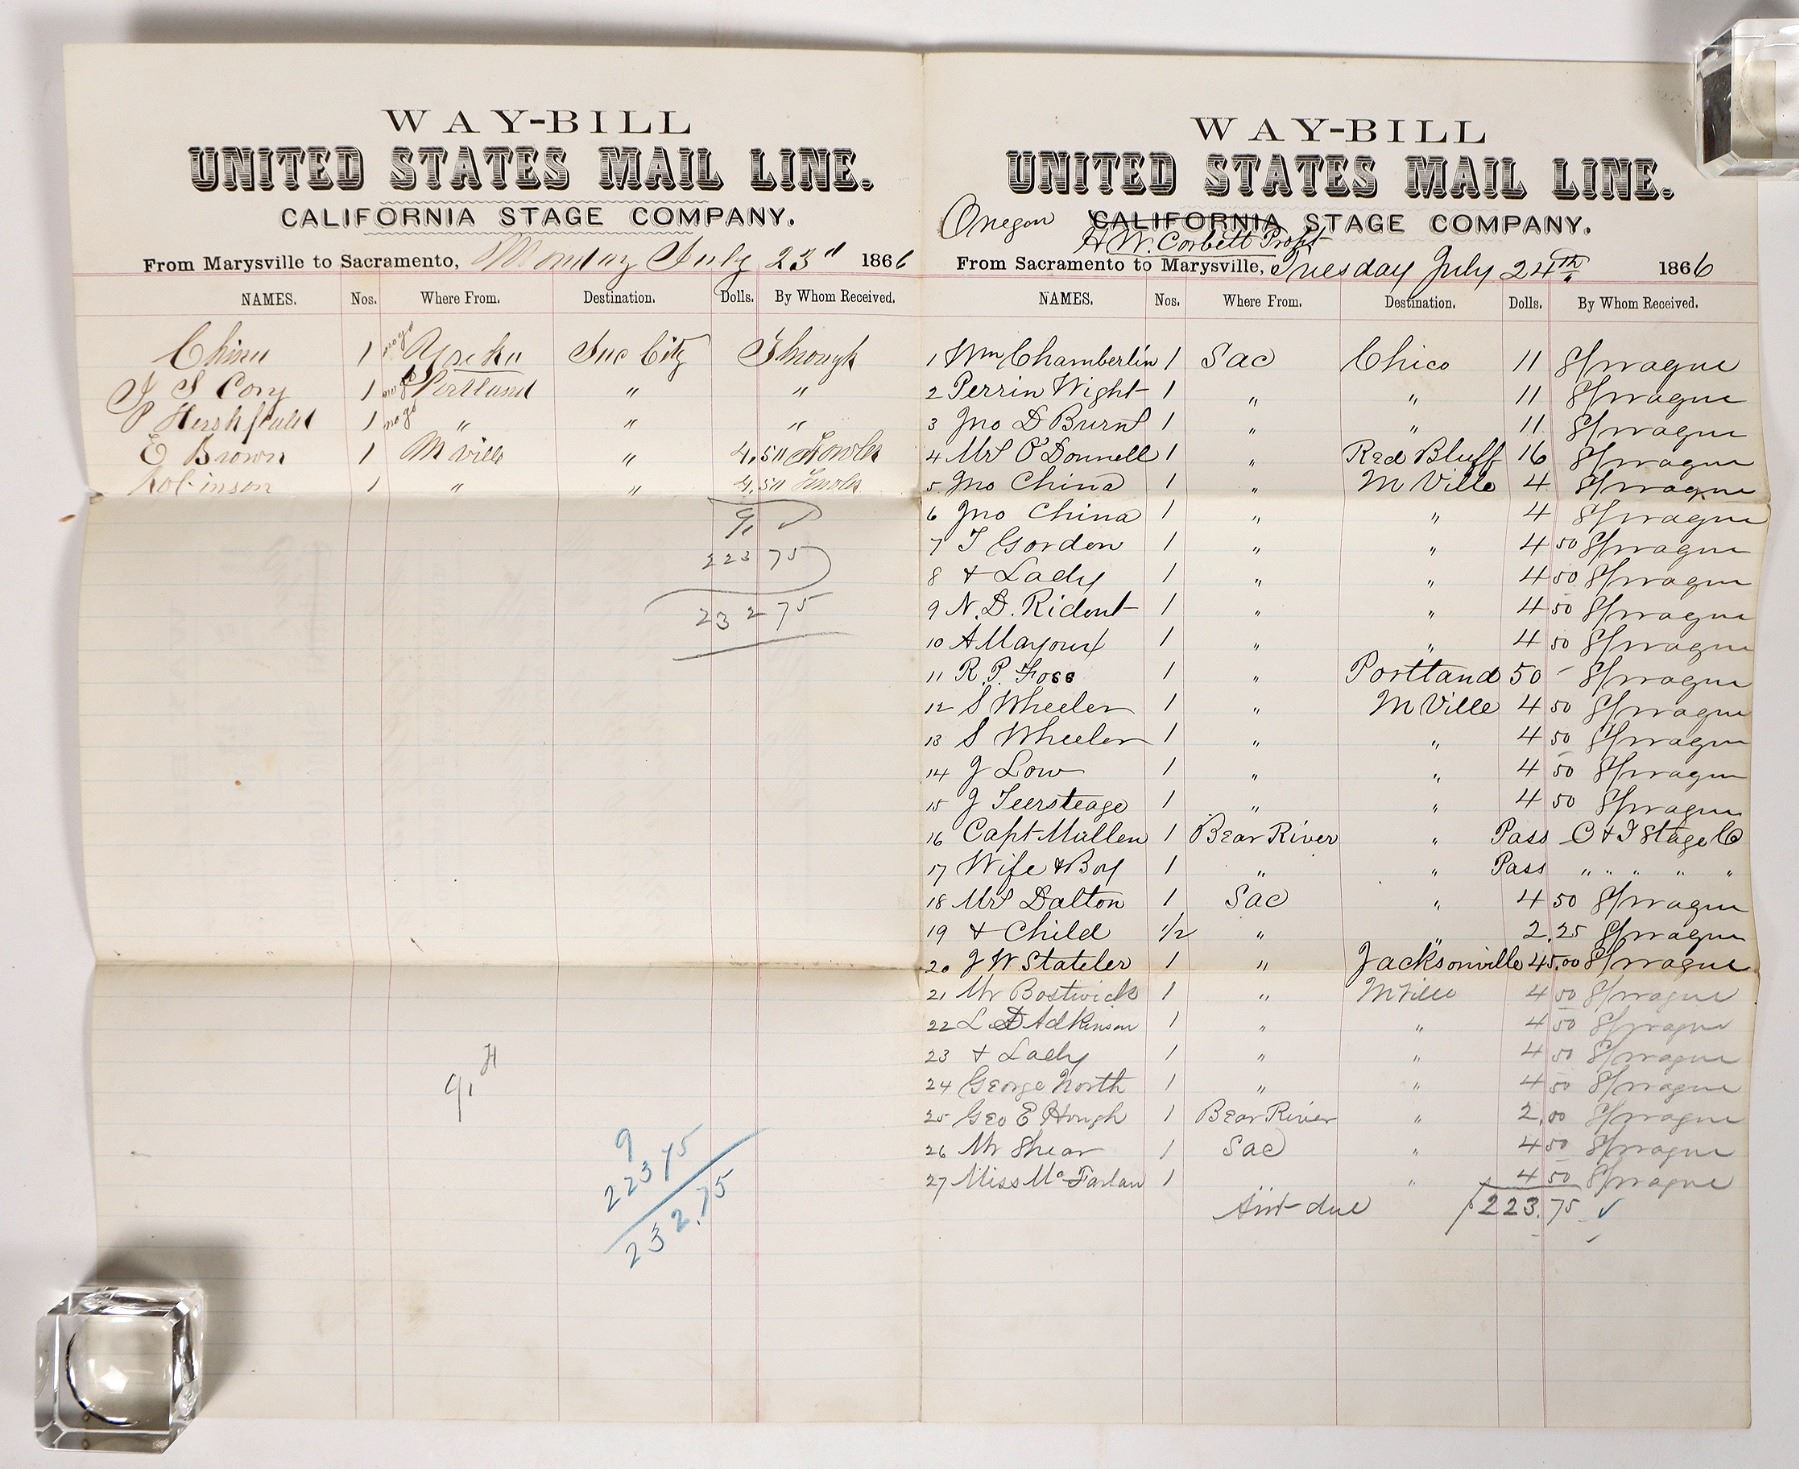 WAY-BILL
UNITED STATES MAIL LINE.
CALIFORNIA STAGE COMPANY.
From Marysville to Sacramento, Monday July 23d 1866
NAMES. Nos. Where From. Destination. Dolls. By Whom Received.
China 1 Yreka Sac City Through
J S Cory 1 Portland " "
P Hershfield 1 " " "
E Brown 1 M ville " 4.50 Fowler
Robinson 1 " " 4.50 Fowler
9,
223 75
232 75
9, H
9
223 75
232.75
WAY-BILL
UNITED STATES MAIL LINE.
Oregon CALIFORNIA STAGE COMPANY.
H W. Corbett Propt
From Sacramento to Marysville, Tuesday July 24th 1866
NAMES. Nos. Where From. Destination. Dolls. By Whom Received.
1 Wm Chamberlin 1 Sac Chico 11 Sprague
2 Perrin Wight 1 " " 11 Sprague
3 Jno D Burns 1 " " 11 Sprague
4 Mrs O'Donnell 1 " Red Bluff 16 Sprague
5 Jno China 1 " M Ville 4 Sprague
6 Jno China 1 " " 4 Sprague
7 T Gordon 1 " " 4 50 Sprague
8 & Lady 1 " " 4 50 Sprague
9 N. D. Ridout 1 " " 4 50 Sprague
10 A 1 " " 4 50 Sprague
11 R. P. Foss 1 " Portland 50 - Sprague
12 S Wheeler 1 " M Ville 4 50 Sprague
13 S Wheeler 1 " " 4 50 Sprague
14 J Low 1 " " 4 50 Sprague
15 J Teersteage 1 " " 4 50 Sprague
16 Capt Mullen 1 Bear River " Pass C & I Stage Co
17 Wife & Boy 1 " " Pass " " " " "
18 Mrs Dalton 1 Sac " 4 50 Sprague
19 & Child 1/2 " " 2.25 Sprague
20 J W Stateler 1 " Jacksonville 45.00 Sprague
21 Mr Bostwick 1 " M Ville 4 50 Sprague
22 L D Adkinson 1 " " 4 50 Sprague
23 & Lady 1 " " 4 50 Sprague
24 George North 1 " " 4 50 Sprague
25 Geo E Hough 1 Bear River " 2.00 Sprague
26 Mr Shear 1 Sac " 4 50 Sprague
27 Miss McFarlan 1 " 4 50 Sprague
Amt due 223.75